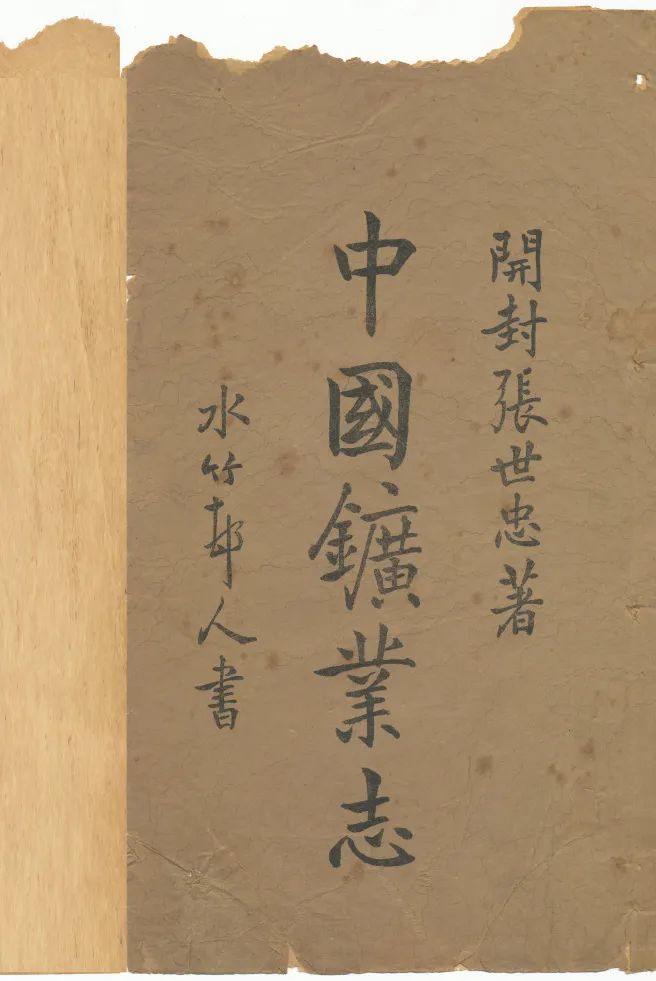 開封張世忠著
中國鑛業志
水竹邨人書